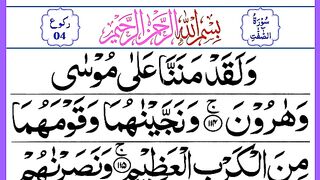 سُوْرَةُ الصّٰفّٰت
بِسْمِ اللّٰهِ الرَّحْمٰنِ الرَّحِيْمِ
رکوع 04
وَلَقَدْ مَنَنَّا عَلٰى مُوْسٰى
وَهٰرُوْنَ ۚ﴿۱۱۴﴾ وَنَجَّيْنٰهُمَا وَقَوْمَهُمَا
مِنَ الْكَرْبِ الْعَظِيْمِ ۚ﴿۱۱۵﴾ وَنَصَرْنٰهُمْ